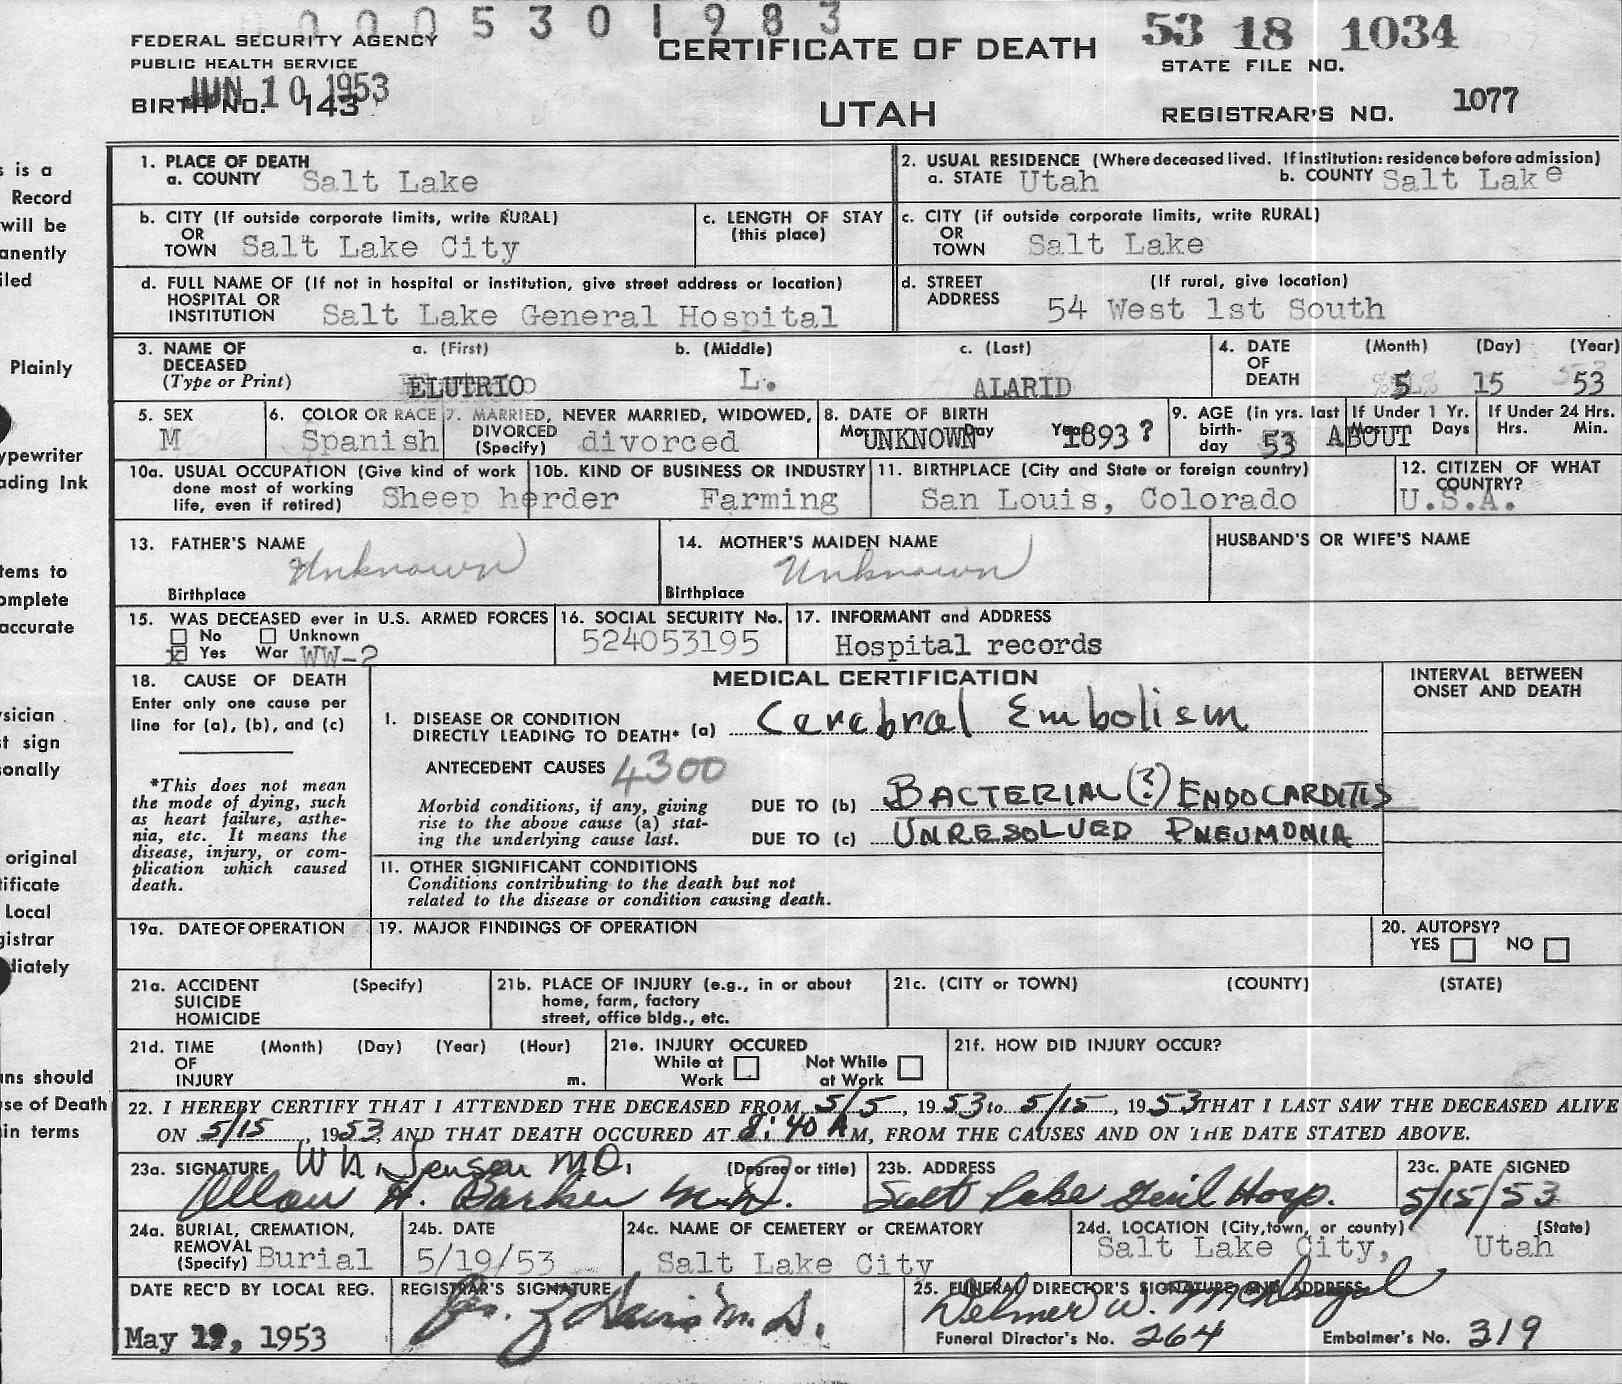 0005301983
FEDERAL SECURITY AGENCY
PUBLIC HEALTH SERVICE
JUN 10 1953
BIRTH NO. 143
CERTIFICATE OF DEATH
UTAH
53 18 1034
STATE FILE NO.
REGISTRAR'S NO. 1077
s is a
Record
will be
anently
iled
Plainly
ypewriter
ading Ink
tems to
omplete
accurate
ysician
t sign
onally
original
tificate
Local
gistrar
diately
ans should
se of Death
in terms
1. PLACE OF DEATH
a. COUNTY Salt Lake
2. USUAL RESIDENCE (Where deceased lived. If institution: residence before admission)
a. STATE Utah b. COUNTY Salt Lake
b. CITY (If outside corporate limits, write RURAL)
OR
TOWN Salt Lake City
c. LENGTH OF STAY
(this place)
c. CITY (if outside corporate limits, write RURAL)
OR
TOWN Salt Lake
d. FULL NAME OF (If not in hospital or institution, give street address or location)
HOSPITAL OR
INSTITUTION Salt Lake General Hospital
d. STREET (If rural, give location)
ADDRESS 54 West 1st South
3. NAME OF DECEASED (Type or Print)
a. (First) b. (Middle) c. (Last)
ELUTRIO L. ALARID
4. DATE OF DEATH (Month) (Day) (Year)
5 15 53
5. SEX
M
6. COLOR OR RACE
Spanish
7. MARRIED, NEVER MARRIED, WIDOWED,
DIVORCED
(Specify) divorced
8. DATE OF BIRTH
Mo. UNKNOWN Day Year 1893?
9. AGE (in yrs. last birth-day 53 ABOUT
If Under 1 Yr.
Mos. Days
If Under 24 Hrs.
Hrs. Min.
10a. USUAL OCCUPATION (Give kind of work
done most of working
life, even if retired) Sheep herder
10b. KIND OF BUSINESS OR INDUSTRY
Farming
11. BIRTHPLACE (City and State or foreign country)
San Louis, Colorado
12. CITIZEN OF WHAT
COUNTRY?
U.S.A.
13. FATHER'S NAME
Unknown
Birthplace
14. MOTHER'S MAIDEN NAME
Unknown
Birthplace
HUSBAND'S OR WIFE'S NAME
15. WAS DECEASED ever in U.S. ARMED FORCES
No Unknown
Yes War WW-2
16. SOCIAL SECURITY No.
524053195
17. INFORMANT and ADDRESS
Hospital records
18. CAUSE OF DEATH
Enter only one cause per
line for (a), (b), and (c)
*This does not mean
the mode of dying, such
as heart failure, asthe-
nia, etc. It means the
disease, injury, or com-
plication which caused
death.
MEDICAL CERTIFICATION
INTERVAL BETWEEN
ONSET AND DEATH
I. DISEASE OR CONDITION
DIRECTLY LEADING TO DEATH* (a) Cerebral Embolism
ANTECEDENT CAUSES 4300
Morbid conditions, if any, giving
rise to the above cause (a) stat-
ing the underlying cause last.
DUE TO (b) BACTERIAL (?) ENDOCARDITIS
DUE TO (c) UNRESOLVED PNEUMONIA
II. OTHER SIGNIFICANT CONDITIONS
Conditions contributing to the death but not
related to the disease or condition causing death.
19a. DATE OF OPERATION
19. MAJOR FINDINGS OF OPERATION
20. AUTOPSY?
YES NO
21a. ACCIDENT (Specify)
SUICIDE
HOMICIDE
21b. PLACE OF INJURY (e.g., in or about
home, farm, factory
street, office bldg., etc.
21c. (CITY or TOWN) (COUNTY) (STATE)
21d. TIME (Month) (Day) (Year) (Hour)
OF
INJURY m.
21e. INJURY OCCURED
While at Work Not While at Work
21f. HOW DID INJURY OCCUR?
22. I HEREBY CERTIFY THAT I ATTENDED THE DECEASED FROM 5/5, 1953 to 5/15, 1953 THAT I LAST SAW THE DECEASED ALIVE
ON 5/15, 1953, AND THAT DEATH OCCURED AT 8:40 A M, FROM THE CAUSES AND ON THE DATE STATED ABOVE.
23a. SIGNATURE W N. Jensen M.D. (Degree or title)
Allan H. Barker M.D.
23b. ADDRESS
Salt Lake Genl Hosp.
23c. DATE SIGNED
5/15/53
24a. BURIAL, CREMATION,
REMOVAL
(Specify) Burial
24b. DATE
5/19/53
24c. NAME OF CEMETERY or CREMATORY
Salt Lake City
24d. LOCATION (City, town, or county) (State)
Salt Lake City, Utah
DATE REC'D BY LOCAL REG.
May 19, 1953
REGISTRAR'S SIGNATURE
25. FUNERAL DIRECTOR'S SIGNATURE AND ADDRESS
Delmer W.
Funeral Director's No. 264 Embalmer's No. 319